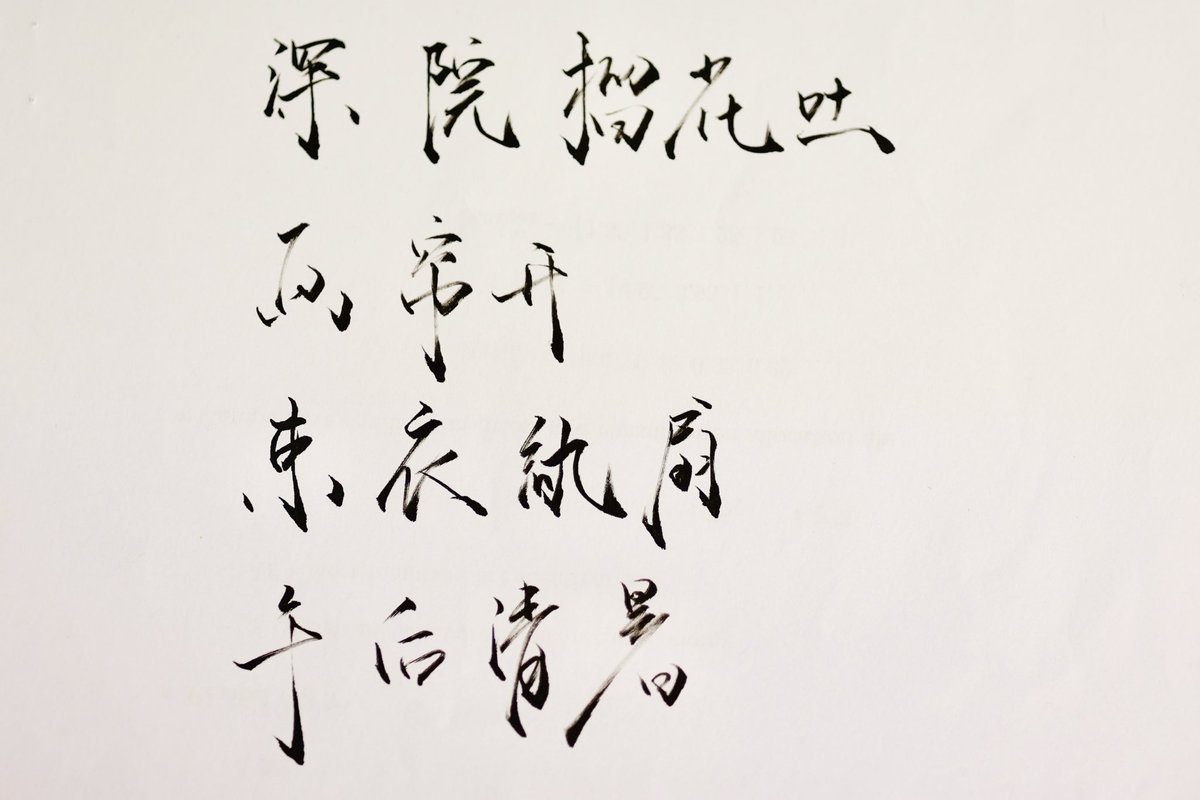 深院榴花吐
画帘开
束衣纨扇
午后清暑